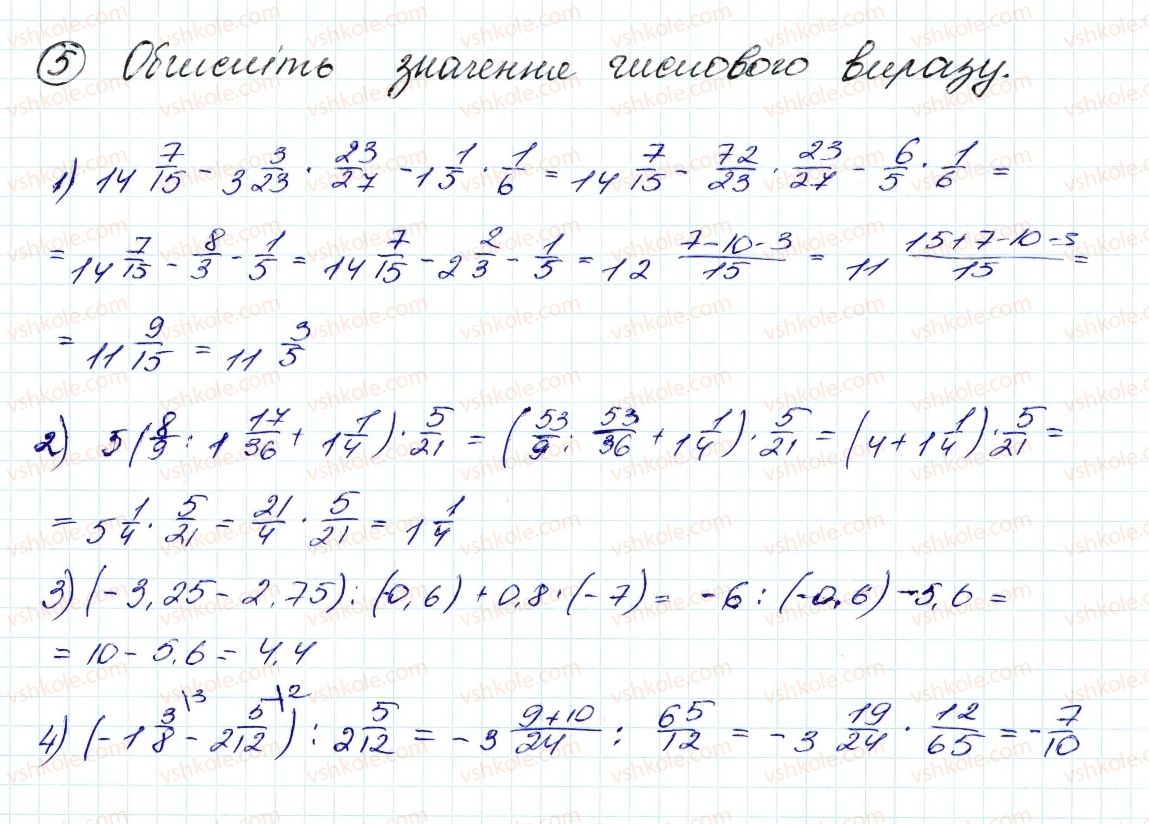 5 Обчисліть значення числового виразу.
1) 14 7/15 - 3 3/23 · 23/27 - 1 1/5 · 1/6 = 14 7/15 - 72/23 · 23/27 - 6/5 · 1/6 =
= 14 7/15 - 8/3 - 1/5 = 14 7/15 - 2 2/3 - 1/5 = 12 (7-10-3)/15 = 11 (15+7-10-3)/15 =
= 11 9/15 = 11 3/5
2) 5 (8/9 : 1 17/36 + 1 1/4) · 5/21 = (53/9 : 53/36 + 1 1/4) · 5/21 = (4 + 1 1/4) · 5/21 =
= 5 1/4 · 5/21 = 21/4 · 5/21 = 1 1/4
3) (-3,25 - 2,75) : (-0,6) + 0,8 · (-7) = -6 : (-0,6) - 5,6 =
= 10 - 5,6 = 4,4
4) (-1 3/8 \3 - 2 5/12 \2) : 2 5/12 = -3 (9+10)/24 : 65/12 = -3 19/24 · 12/65 = -7/10
vshkole.com